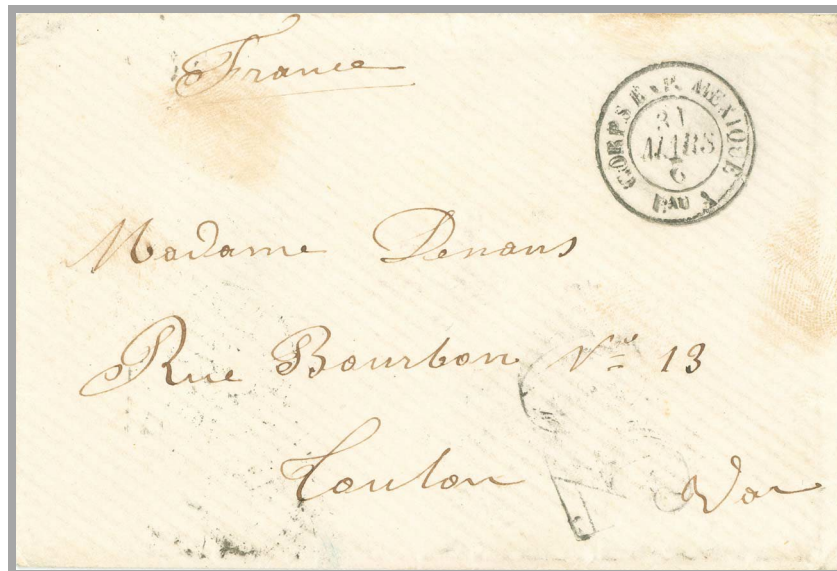 France
CORPS EXP. MEXIQUE
31
MARS
6
Bau
Madame Denans
Rue Bourbon N° 13
Toulon Var